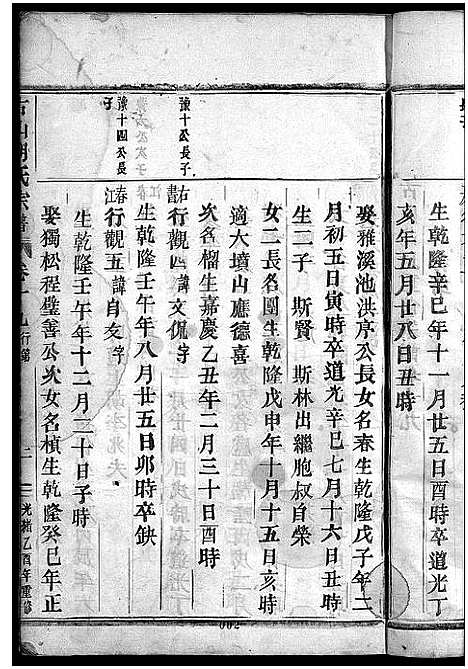 生乾隆辛巳年十一月廿五日酉時卒道光丁
亥年五月廿八日丑時
娶雅溪池洪序公長女名春生乾隆戊子年二
月初五日寅時卒道光辛巳七月十六日丑時
生二子 斯賢 斯林出繼胞叔自榮
女二長名園生乾隆戊申年十月十五日亥時
適大墳山應德喜
次名榴生嘉慶乙丑年二月三十日酉時
豫十公長子
右行觀四諱文侃字
生乾隆壬午年八月廿五日卯時卒缺
豫十四公長子
春江行觀五諱自友字
生乾隆壬午年十二月三十日子時
娶獨松程璧善公次女名楨生乾隆癸巳年正
氏宗譜
行第
光緒乙酉年重修
002